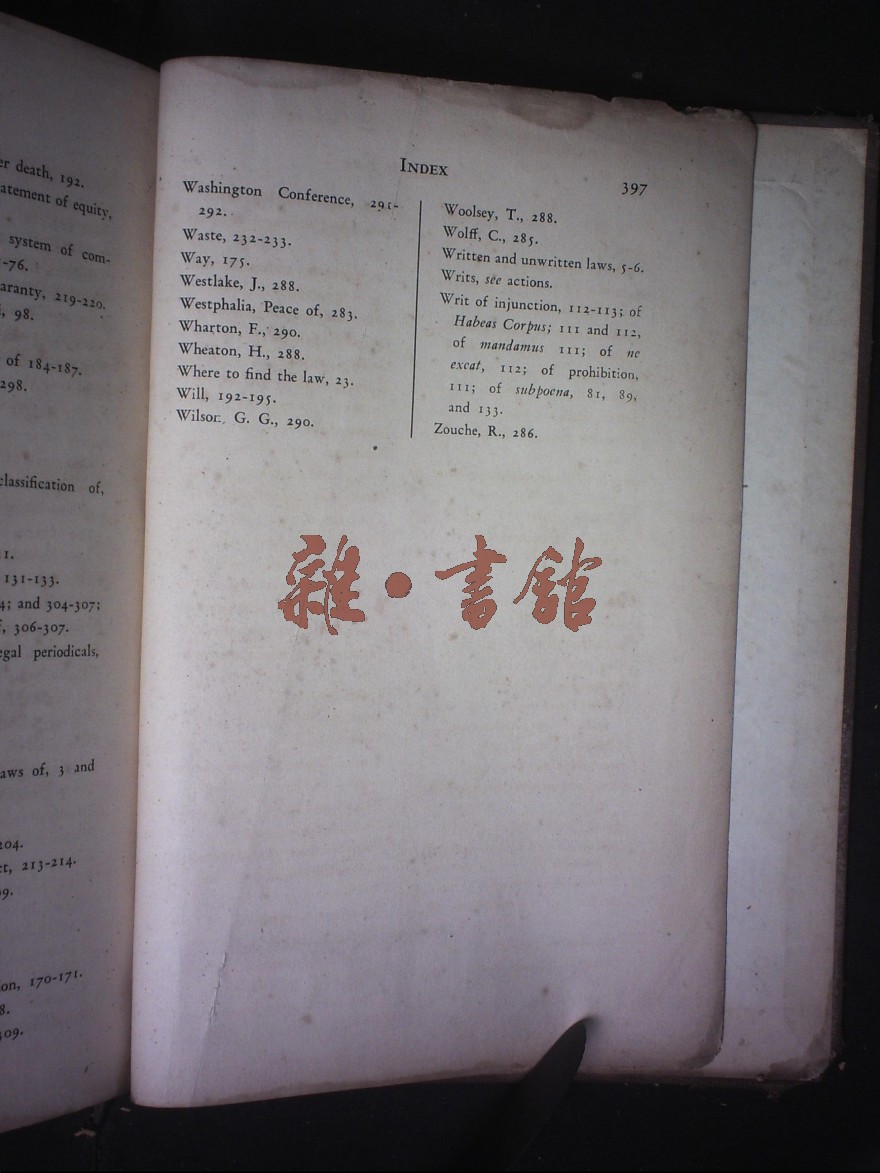 er death, 192.
atement of equity,
system of com-
-76.
aranty, 219-220.
, 98.
of 184-187.
298.
classification of,
1.
131-133.
4; and 304-307;
, 306-307.
egal periodicals,
aws of, 3 and
204.
ct, 213-214.
9.
on, 170-171.
8.
309.
INDEX
397
Washington Conference, 291-
292.
Waste, 232-233.
Way, 175.
Westlake, J., 288.
Westphalia, Peace of, 283.
Wharton, F., 290.
Wheaton, H., 288.
Where to find the law, 23.
Will, 192-195.
Wilson, G. G., 290.
Woolsey, T., 288.
Wolff, C., 285.
Written and unwritten laws, 5-6.
Writs, see actions.
Writ of injunction, 112-113; of
Habeas Corpus; 111 and 112,
of mandamus 111; of ne
exeat, 112; of prohibition,
111; of subpoena, 81, 89,
and 133.
Zouche, R., 286.
雜•書館